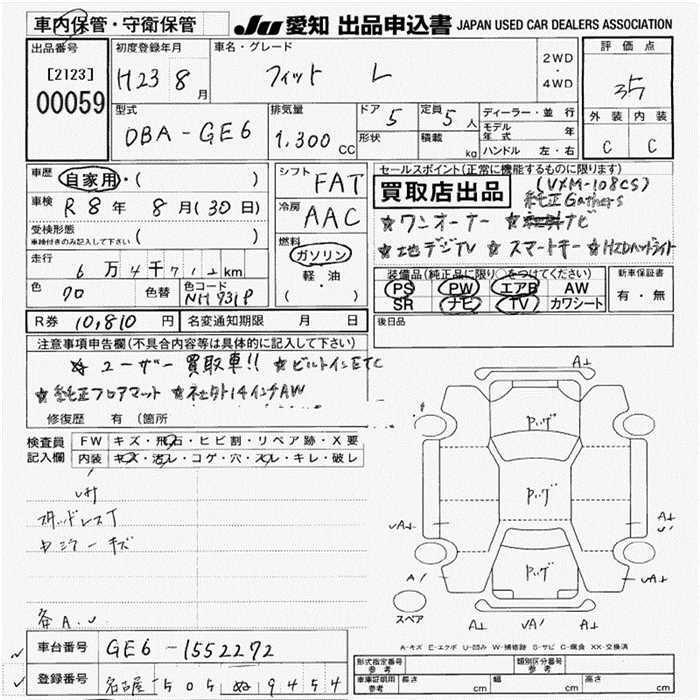 車内保管・守衛保管 JU 愛知 出品申込書 JAPAN USED CAR DEALERS ASSOCIATION
出品番号 初度登録年月 車名・グレード 評価点
[2123] H23 8月 フィット L 2WD・4WD 3.5
00059
型式 排気量 ドア 5 定員 5人 ディーラー・並行 外装 内装
DBA-GE6 1,300 CC 形状 積載 kg モデル年式 年 C C
ハンドル 左・右
車歴 自家用・( ) シフト FAT セールスポイント(正常に機能するものに限ります)
車検 R8年 8月(30日) 冷房 AAC 買取店出品 (VXM-108CS)
純正Gathers
受検形態 ( ) ☆ワンオーナー ☆ ナビ
車検付きのみ記入して下さい
燃料 ガソリン ☆地デジTV ☆スマートキー ☆HIDヘッドライト
走行 6万4千712km 軽・油 装備品(純正品に限り○をつけてください) 新車保証書
( ) PS PW エアB AW 有・無
色 色替 色コード NH731P SR ナビ TV カワシート
R券 10,810円 名変通知期限 月 日 後日品
注意事項申告欄(不具合内容等は具体的に記入して下さい)
☆ユーザー買取車!! ☆ビルトインETC
☆純正フロアマット ☆社外14インチAW
修復歴 有 (箇所
検査員記入欄 FW キズ・飛石・ヒビ割・リペア跡・X要
内装 キズ・汚レ・コゲ・穴・スレ・キレ・破レ
スタッドレスT
キズ
各A.U
A⊥
Pッグ
A⊥ A⊥
Pッグ
UA⊥
A⊥
U'
Pッグ
A' UA⊥
スペア A⊥ UA' A⊥
A-キズ E-エクボ U-凹み W-補修跡 S-サビ C-腐食 XX-交換済
車台番号 GE6-1552272
登録番号 名古屋 505 ぬ 9454
形式指定番号 参考 類別区分番号 参考
車庫証明用 参考 長さ cm 幅 cm 高さ cm